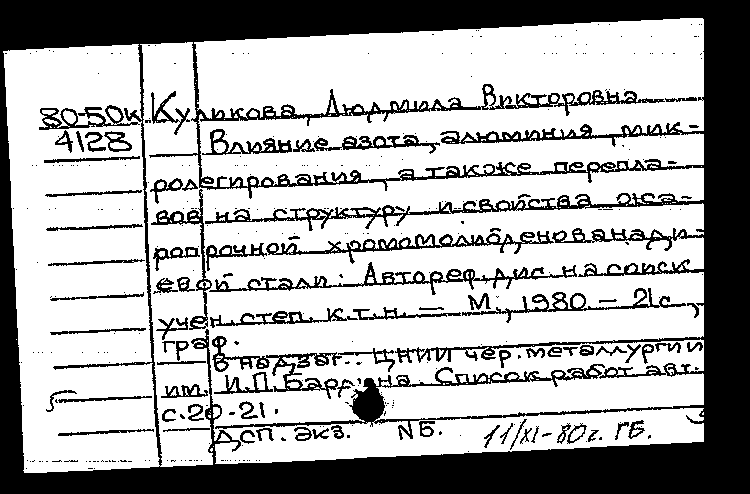 80-50к Куликова, Людмила Викторовна
4128 Влияние азота, алюминия, мик-
ролегирования, а также перепла-
вов на структуру и свойства жа-
ропрочной хромомолибденованади-
евой стали: Автореф. дис. на соиск
учен. степ. к.т.н. — М., 1980 — 21с,
граф.
В надзаг.: ЦНИИ чер. металлургии
им. И.П. Бардина. Список работ авт.
с. 20-21.
Дсп. экз. NБ. 11/XI-80г. ГБ.